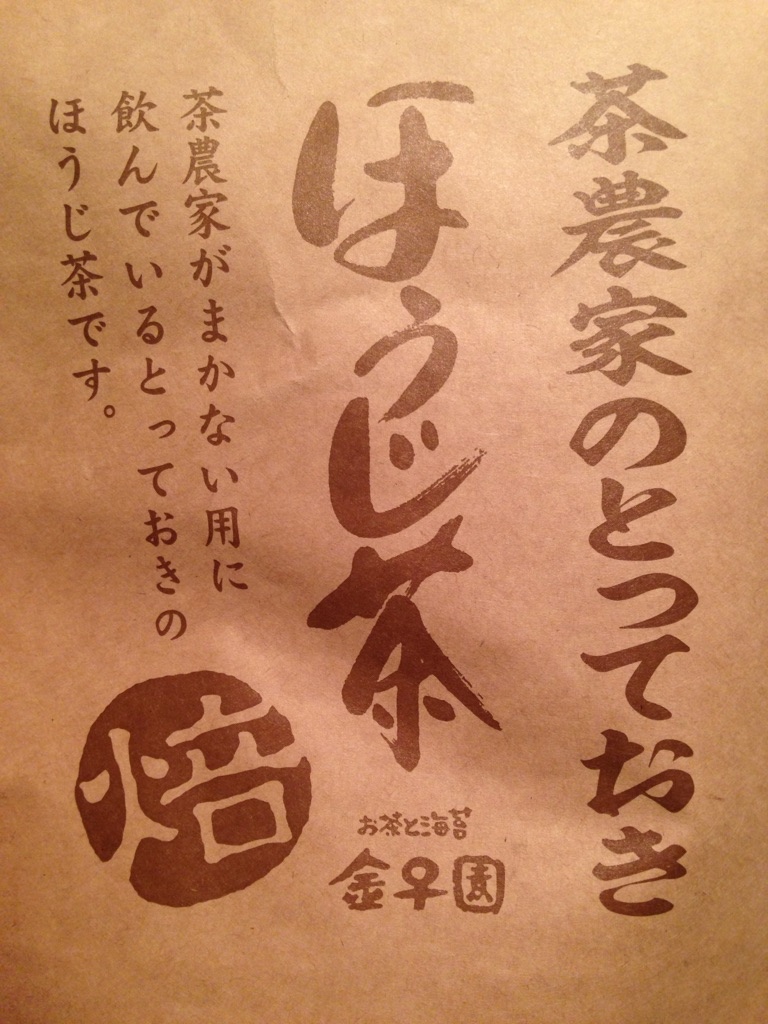 茶農家のとっておき
ほうじ茶
茶農家がまかない用に
飲んでいるとっておきの
ほうじ茶です。
焙
お茶と海苔
金子園